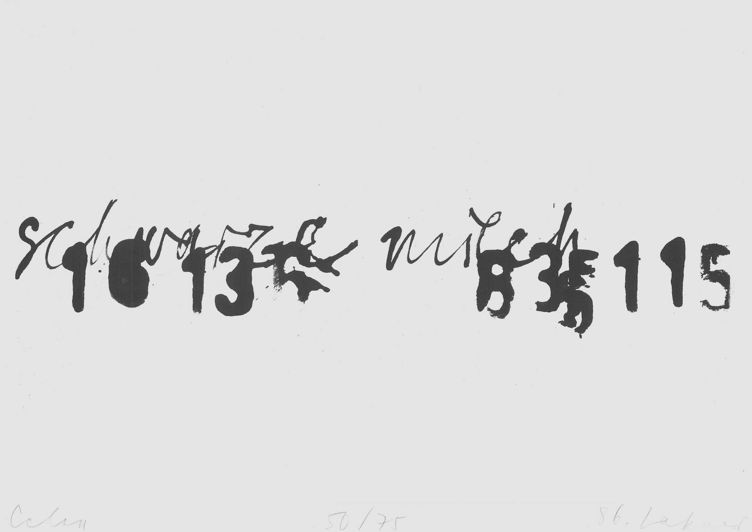 schwarze milch
16 13 83 115
Celan 50/75